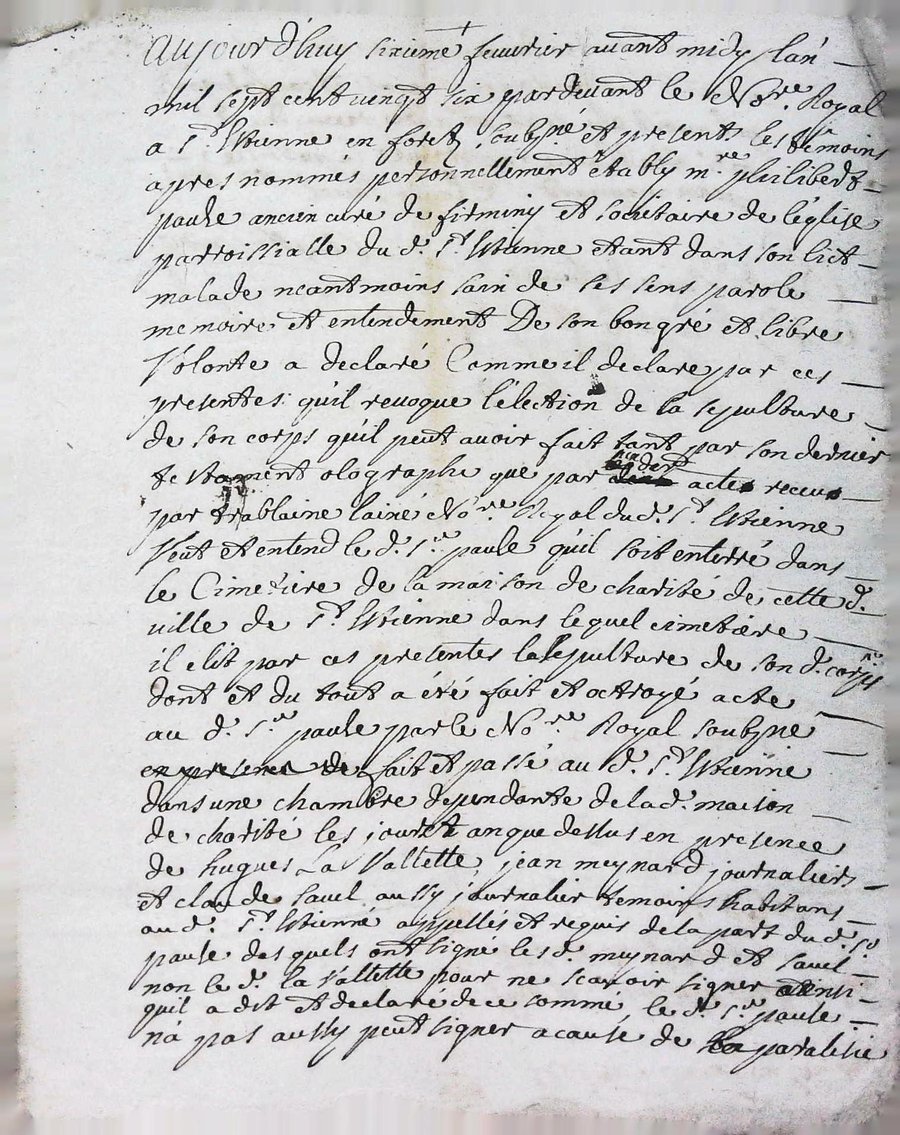 aujourd'huy sixieme feuvrier auant midy l'an
mil sept cent vingt six pardeuant le No.re Royal
a St. Etienne en foretz soubsné. et presents les temoins
apres nommés personnellement etably m.re philibert
paule ancien curé de firminy et societaire de l'église
parroissialle du d. St. Etienne etant dans son lict
malade neantmoins sain de ses sens parole
memoire et entendement De son bon gré et libre
Volonte a declaré Comme il declare par ces
presentes qu'il reuoque l'election de la sepulture
de son corps qu'il peut auoir fait tant par son dernier
testament olographe que par acte receu
par trablaine lainé No.re Royal du d. St. Etienne
Veut et entend le d. Sr. paule qu'il soit enterré dans
le Cimetiere de la maison de charité de cette d.
ville de St. Etienne dans lequel cimetiere
il elit par ces presentes la sepulture de son d. corps
dont et du tout a été fait et octroyé acte
au d. Sr. paule par le No.re Royal soubsne
en presence de fait et passé au d. St. Etienne
dans une chambre dependante de la d. maison
de charité les jour et an que dessus en presence
de hugues La Vallette, jean meynard journaliers
et claude sauel aussy journalier temoins habitans
au d. St. Etienne appellés et requis de la part du d. Sr.
paule desquels ont signé les d. meynard et sauel
non le d. la Vallette pour ne scauoir signer ainsi
quil a dit et declaré de ce somme le d. Sr. paule
n'a pas aussy peut signer a cause de la paralisie